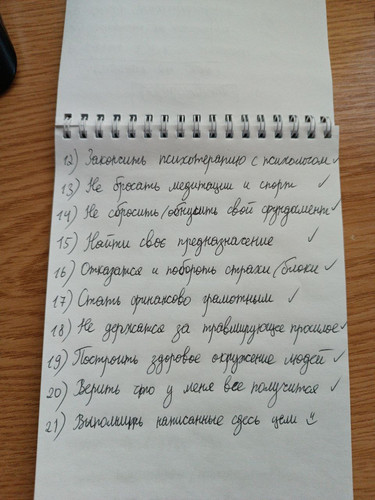 12) Закончить психотерапию с психологом ✓
13) Не бросать медитации и спорт ✓
14) Не сбросить/обнулить свой фундамент ✓
15) Найти своё предназначение ✓
16) Отказатся и побороть страхи/блоки ✓
17) Стать финансово грамотным ✓
18) Не держатся за травмирующее прошлое ✓
19) Построить здоровое окружение людей ✓
20) Верить что у меня все получится ✓
21) Выполнить написанные здесь цели :)